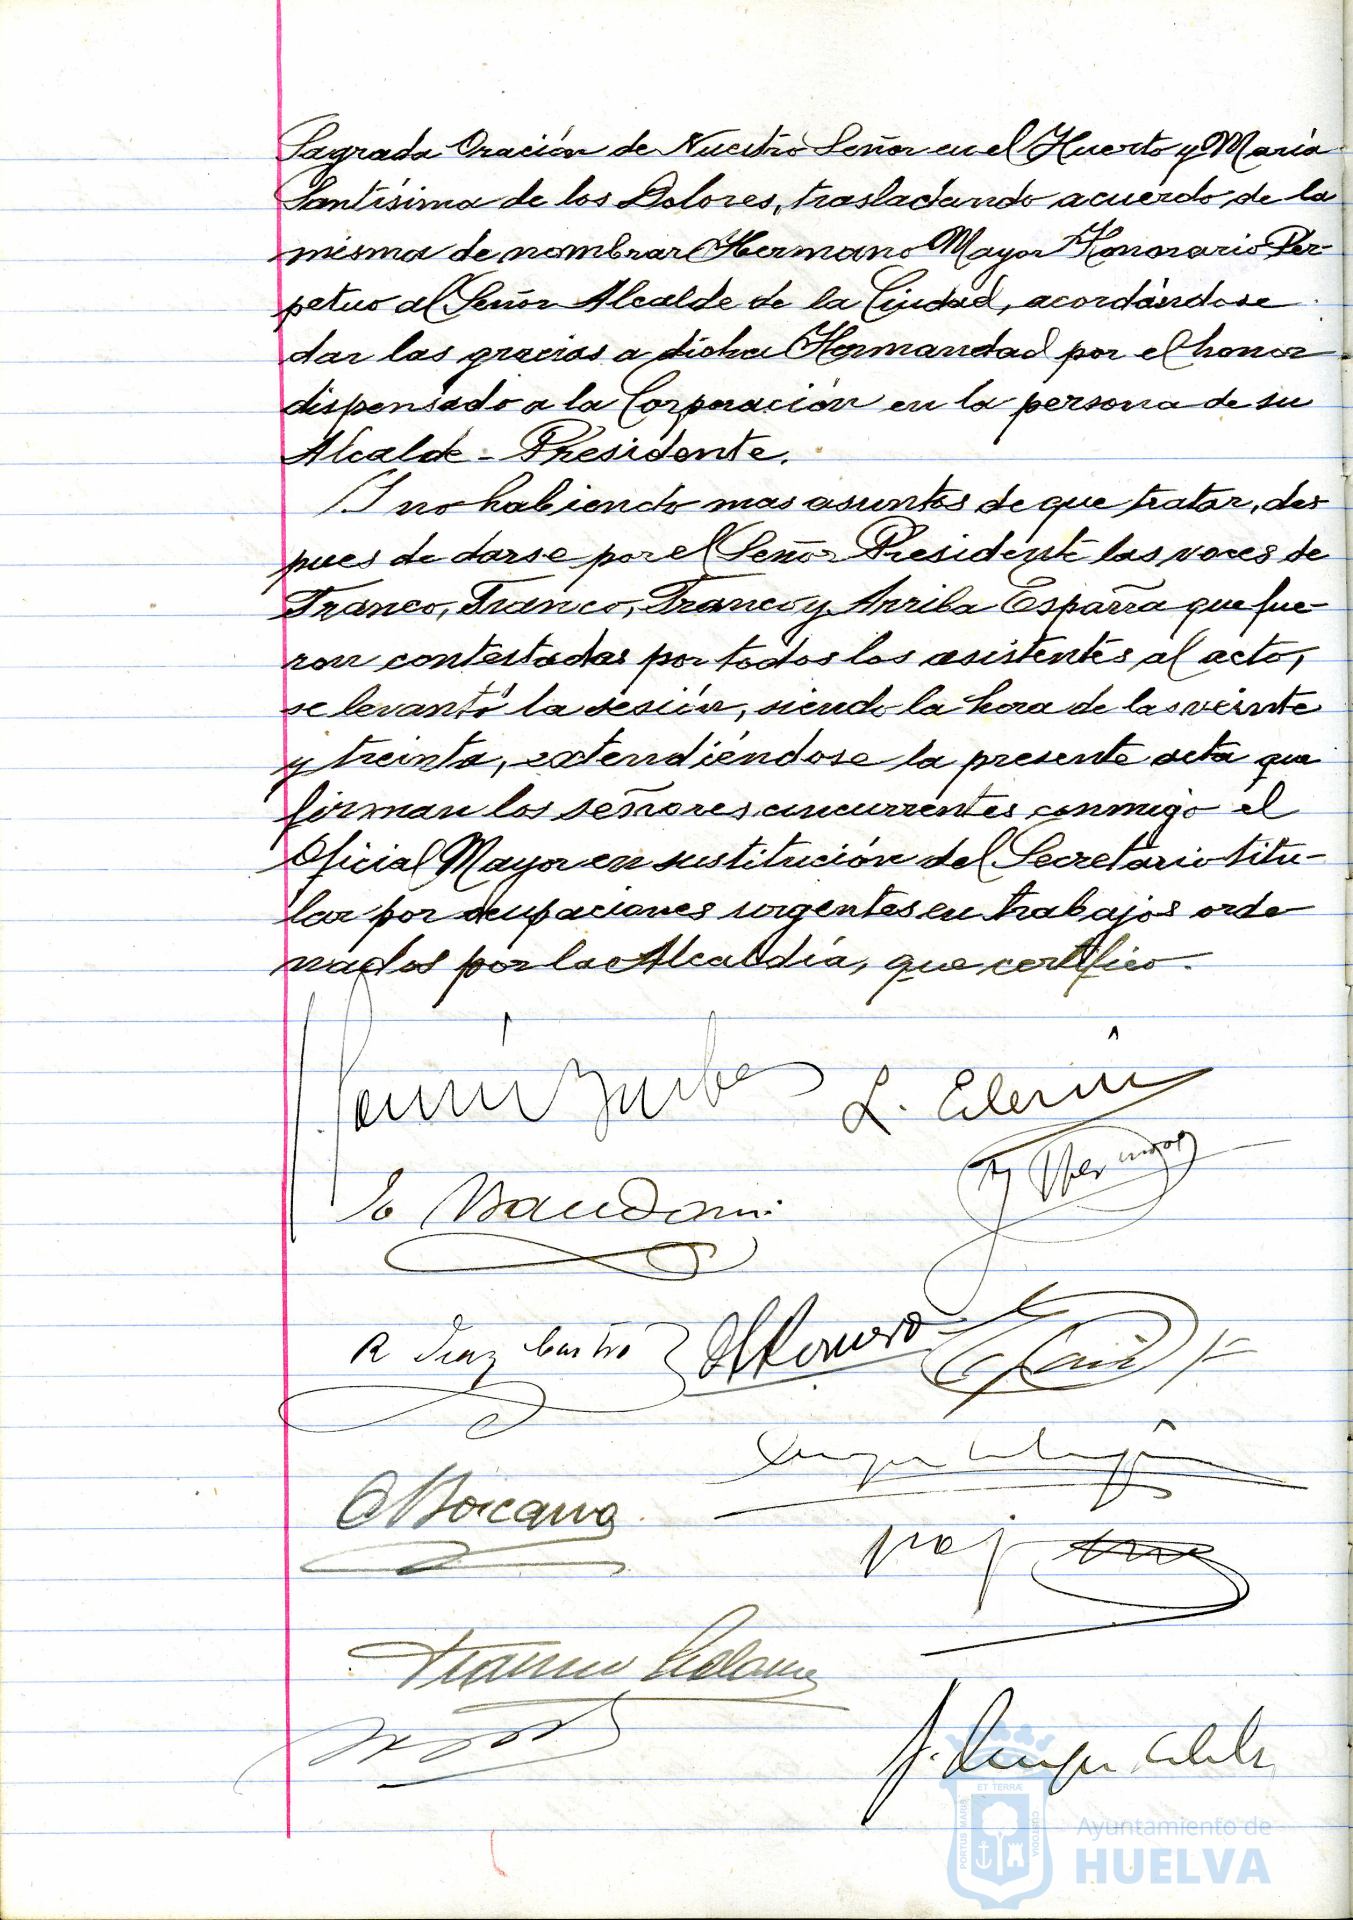 Sagrada Oración de Nuestro Señor en el Huerto y María
Santísima de los Dolores, trasladando acuerdo de la
misma de nombrar Hermano Mayor Honorario Per-
petuo al Señor Alcalde de la Ciudad, acordándose
dar las gracias a dicha Hermandad por el honor
dispensado a la Corporación en la persona de su
Alcalde - Presidente.
Y no habiendo mas asuntos de que tratar, des
pues de darse por el Señor Presidente las voces de
Franco, Franco, Franco y Arriba España que fue-
ron contestadas por todos los asistentes al acto,
se levantó la sesión, siendo la hora de las veinte
y treinta, extendiéndose la presente acta que
firman los señores concurrentes conmigo el
Oficial Mayor en sustitución del Secretario titu-
lar por ocupaciones urgentes en trabajos orde
nados por la Alcaldía, que certifico.
L.
R Diaz Castro
Romero
ET TERRAE
PORTUS MARIS
CUSTODIA
Ayuntamiento de
HUELVA